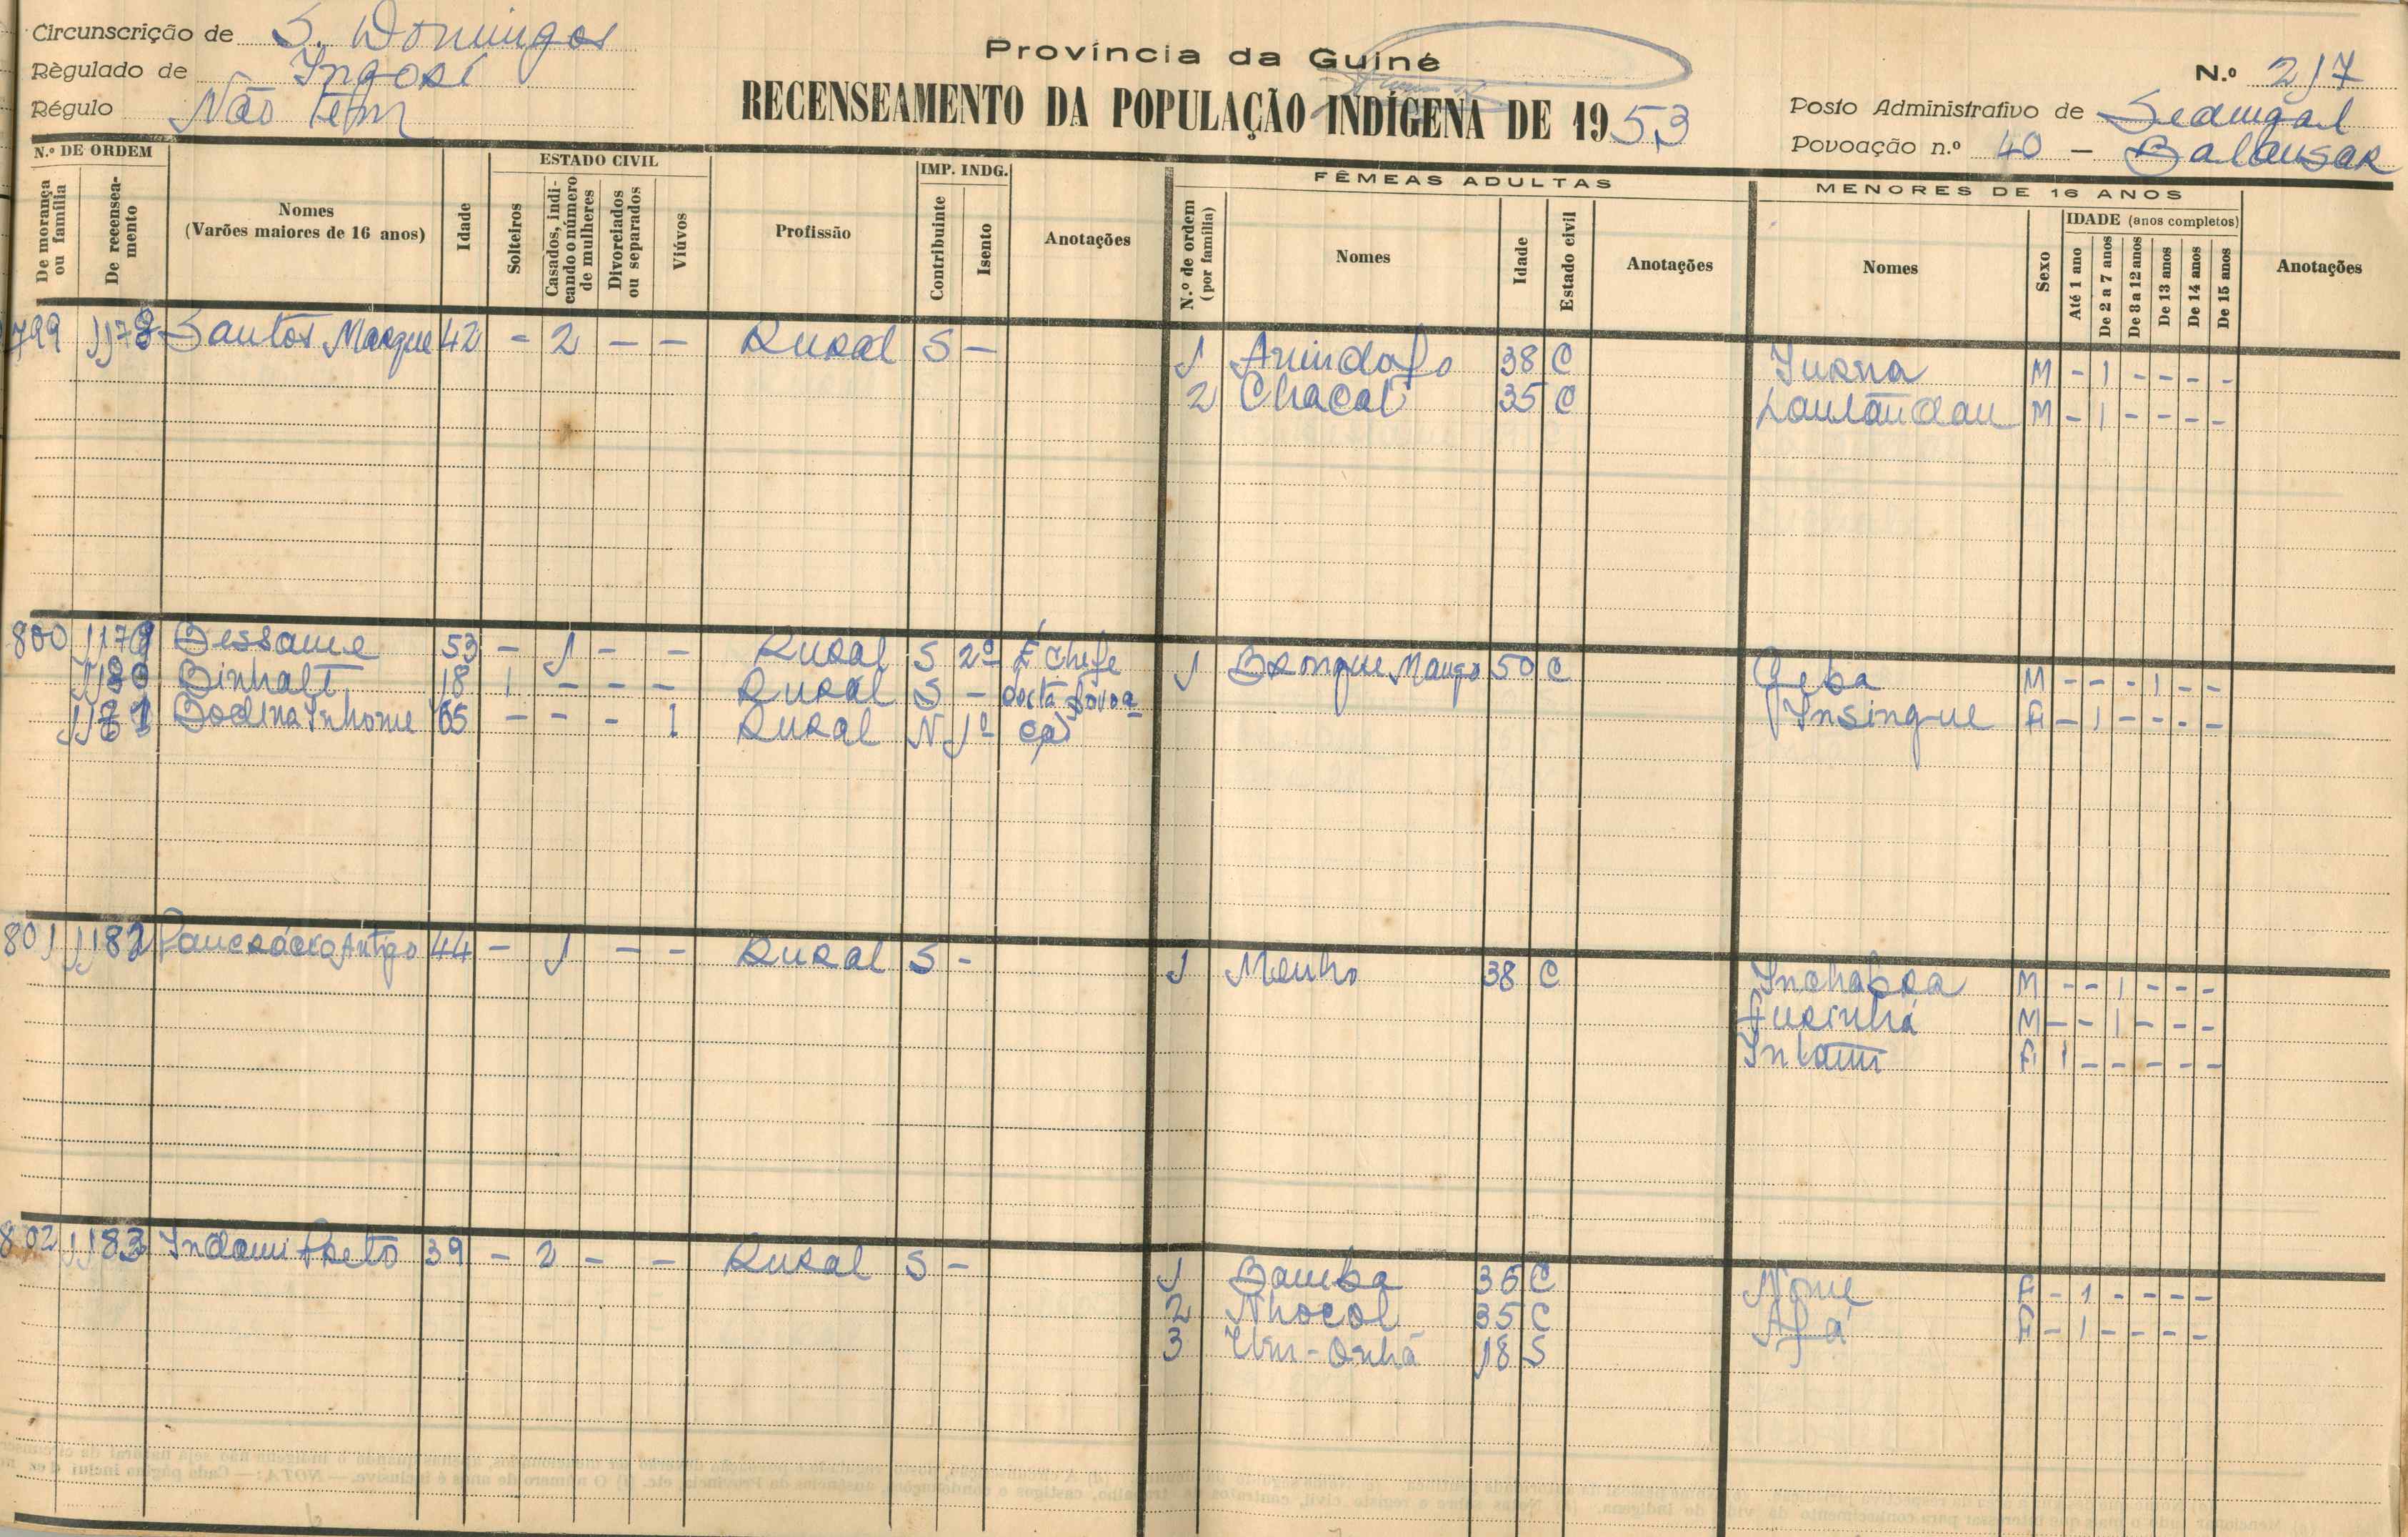 Circunscrição de S. Domingos
Règulado de Ingoré
Régulo Não tem
Província da Guiné
RECENSEAMENTO DA POPULAÇÃO INDÍGENA DE 1953
N.º 217
Posto Administrativo de Sedengal
Povoação n.º 40 - Balansar
N.º DE ORDEM
De morança ou família
De recenseamento
Nomes
(Varões maiores de 16 anos)
Idade
ESTADO CIVIL
Solteiros
Casados, indicando o número de mulheres
Divorciados ou separados
Viúvos
Profissão
IMP. INDG.
Contribuinte
Isento
Anotações
FÊMEAS ADULTAS
N.º de ordem (por família)
Nomes
Idade
Estado civil
Anotações
MENORES DE 16 ANOS
Nomes
Sexo
IDADE (anos completos)
Até 1 ano
De 2 a 7 anos
De 8 a 12 anos
De 13 anos
De 14 anos
De 15 anos
Anotações
799 1178 Santos Marque 42 - 2 - - Rural S - 1 Anindafo 38 C Jurna M - 1 - - - -
2 Chacal 35 C M - 1 - - - -
800 1179 Bessame 53 - 1 - - Rural S 2º É Chefe 1 Bronque Mango 50 C Geba M - - - 1 - -
1180 Binhalt 18 1 - - - Rural S - desta Povoa Insingue F - 1 - - - -
1181 Bodina Inhome 65 - - - 1 Rural N 1º ção
801 1182 Pancrácio Antigo 44 - 1 - - Rural S - 1 Menho 38 C Inchabra M - - 1 - - -
Jurinhá M - - 1 - - -
Intami F 1 - - - - -
802 1183 Indami Preto 39 - 2 - - Rural S - 1 Bamba 36 C Nome F - 1 - - - -
2 Nhocol 35 C Afá F - 1 - - - -
3 18 S